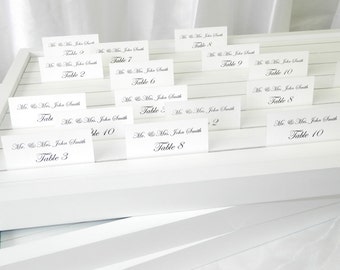 Mr. & Mrs. John Smith
Table 8
Mr. & Mrs. John Smith
Table 9
Mr. & Mrs. John Smith
Table 7
Mr. & Mrs. John Smith
Table 2
Mr. & Mrs. John Smith
Table 9
Mr. & Mrs. John Smith
Table 10
Mr. & Mrs. John Smith
Table 6
Mr. & Mrs. John Smith
Table 8
Mr. & Mrs. John Smith
Table
Mr. & Mrs. John Smith
Mr. & Mrs. John Smith
2
Mrs. John Smith
Table 10
Mr. & Mrs. John Smith
Table 3
Mr. & Mrs. John Smith
Table 8
Mr. & Mrs. John Smith
Table 10